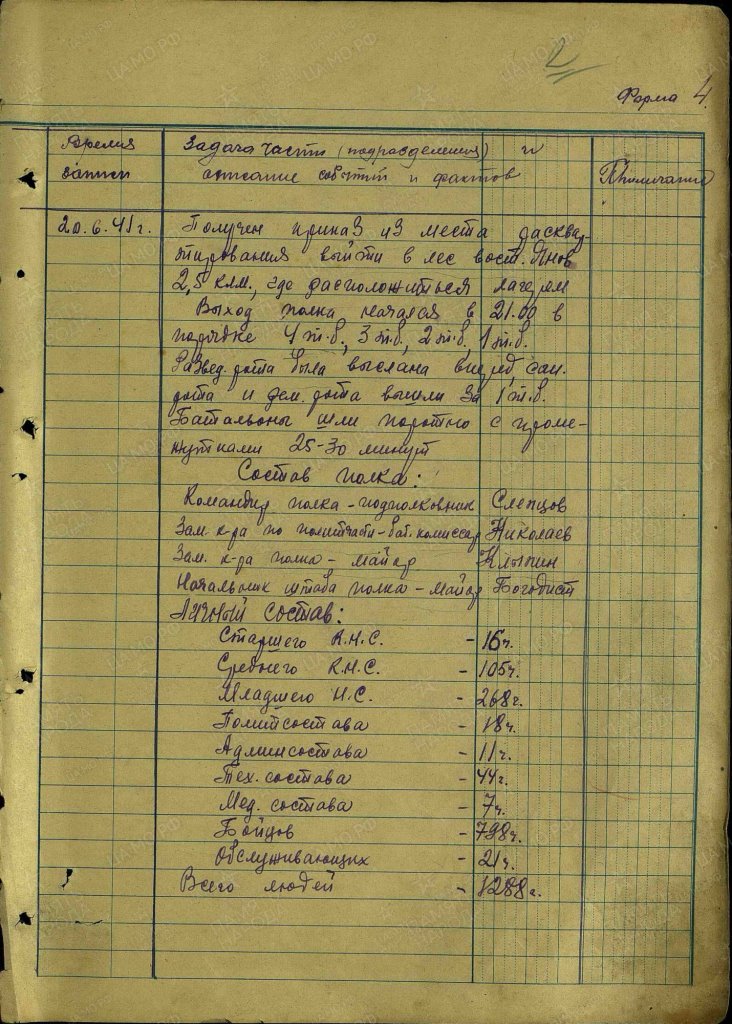 2
Форма 4.
Время записи
Задача части (подразделения) и
описание событий и фактов
Примечание
20.6.41г.
Получен приказ из места расквар-
тирования выйти в лес вост. Янов
2,5 клм., где расположиться лагерем
Выход полка начался в 21.00 в
порядке 4 т.б., 3 т.б., 2 т.б. 1 т.б.
Развед. рота была выслана вперед, сан.
рота и рем. рота вышли за 1 т.б.
Батальоны шли поротно с проме-
жутками 25-30 минут
Состав полка:
Командир полка - подполковник Слепцов
Зам. к-ра по политчасти - бат. комиссар Николаев
Зам. к-ра полка - майор Клыпин
Начальник штаба полка - майор Богодист
Личный состав:
Старшего К.Н.С. - 16ч.
Среднего К.Н.С. - 105ч.
Младшего Н.С. - 268ч.
Политсостава - 18ч.
Админсостава - 11ч.
Тех. состава - 44ч.
Мед. состава - 7ч.
Бойцов - 798ч.
Обслуживающих - 21ч.
Всего людей - 1288ч.
ЦАМО.РФ